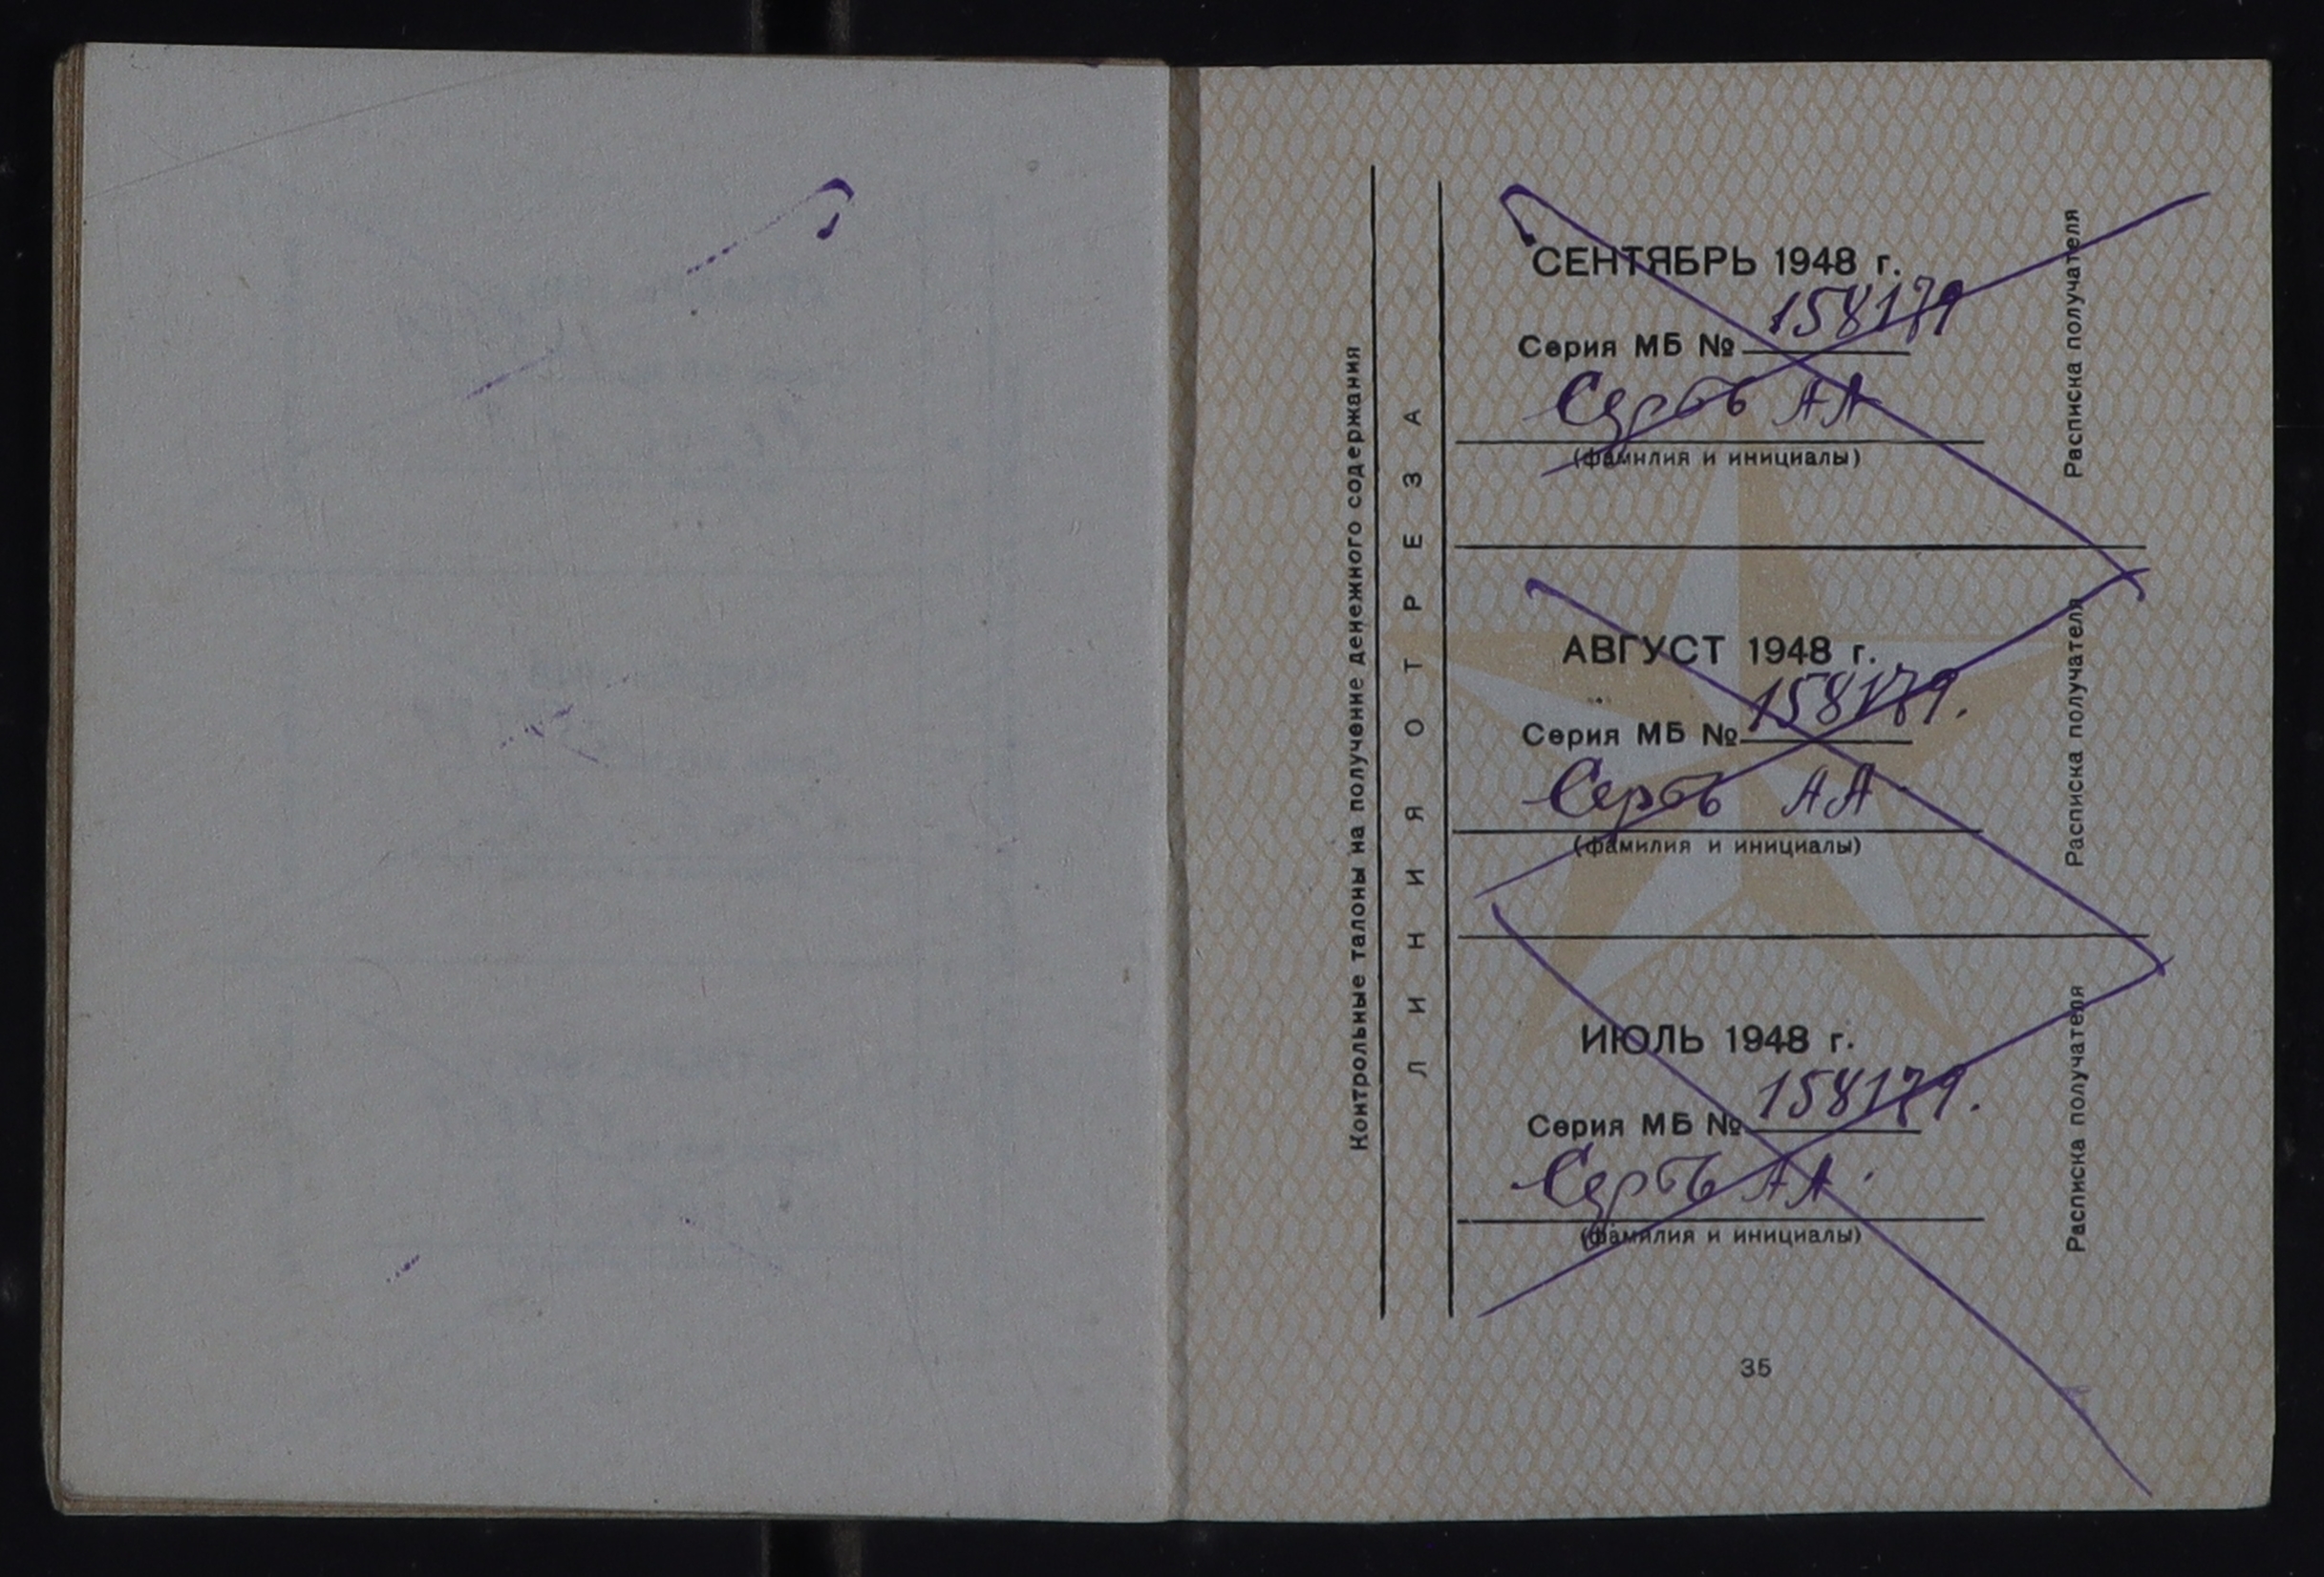 Контрольные талоны на получение денежного содержания
ЛИНИЯ ОТРЕЗА
СЕНТЯБРЬ 1948 г.
158179
Серия МБ №
АА
(фамилия и инициалы)
Расписка получателя
АВГУСТ 1948 г.
158179.
Серия МБ №
АА
(фамилия и инициалы)
Расписка получателя
ИЮЛЬ 1948 г.
158179.
Серия МБ №
АА.
(фамилия и инициалы)
Расписка получателя
35